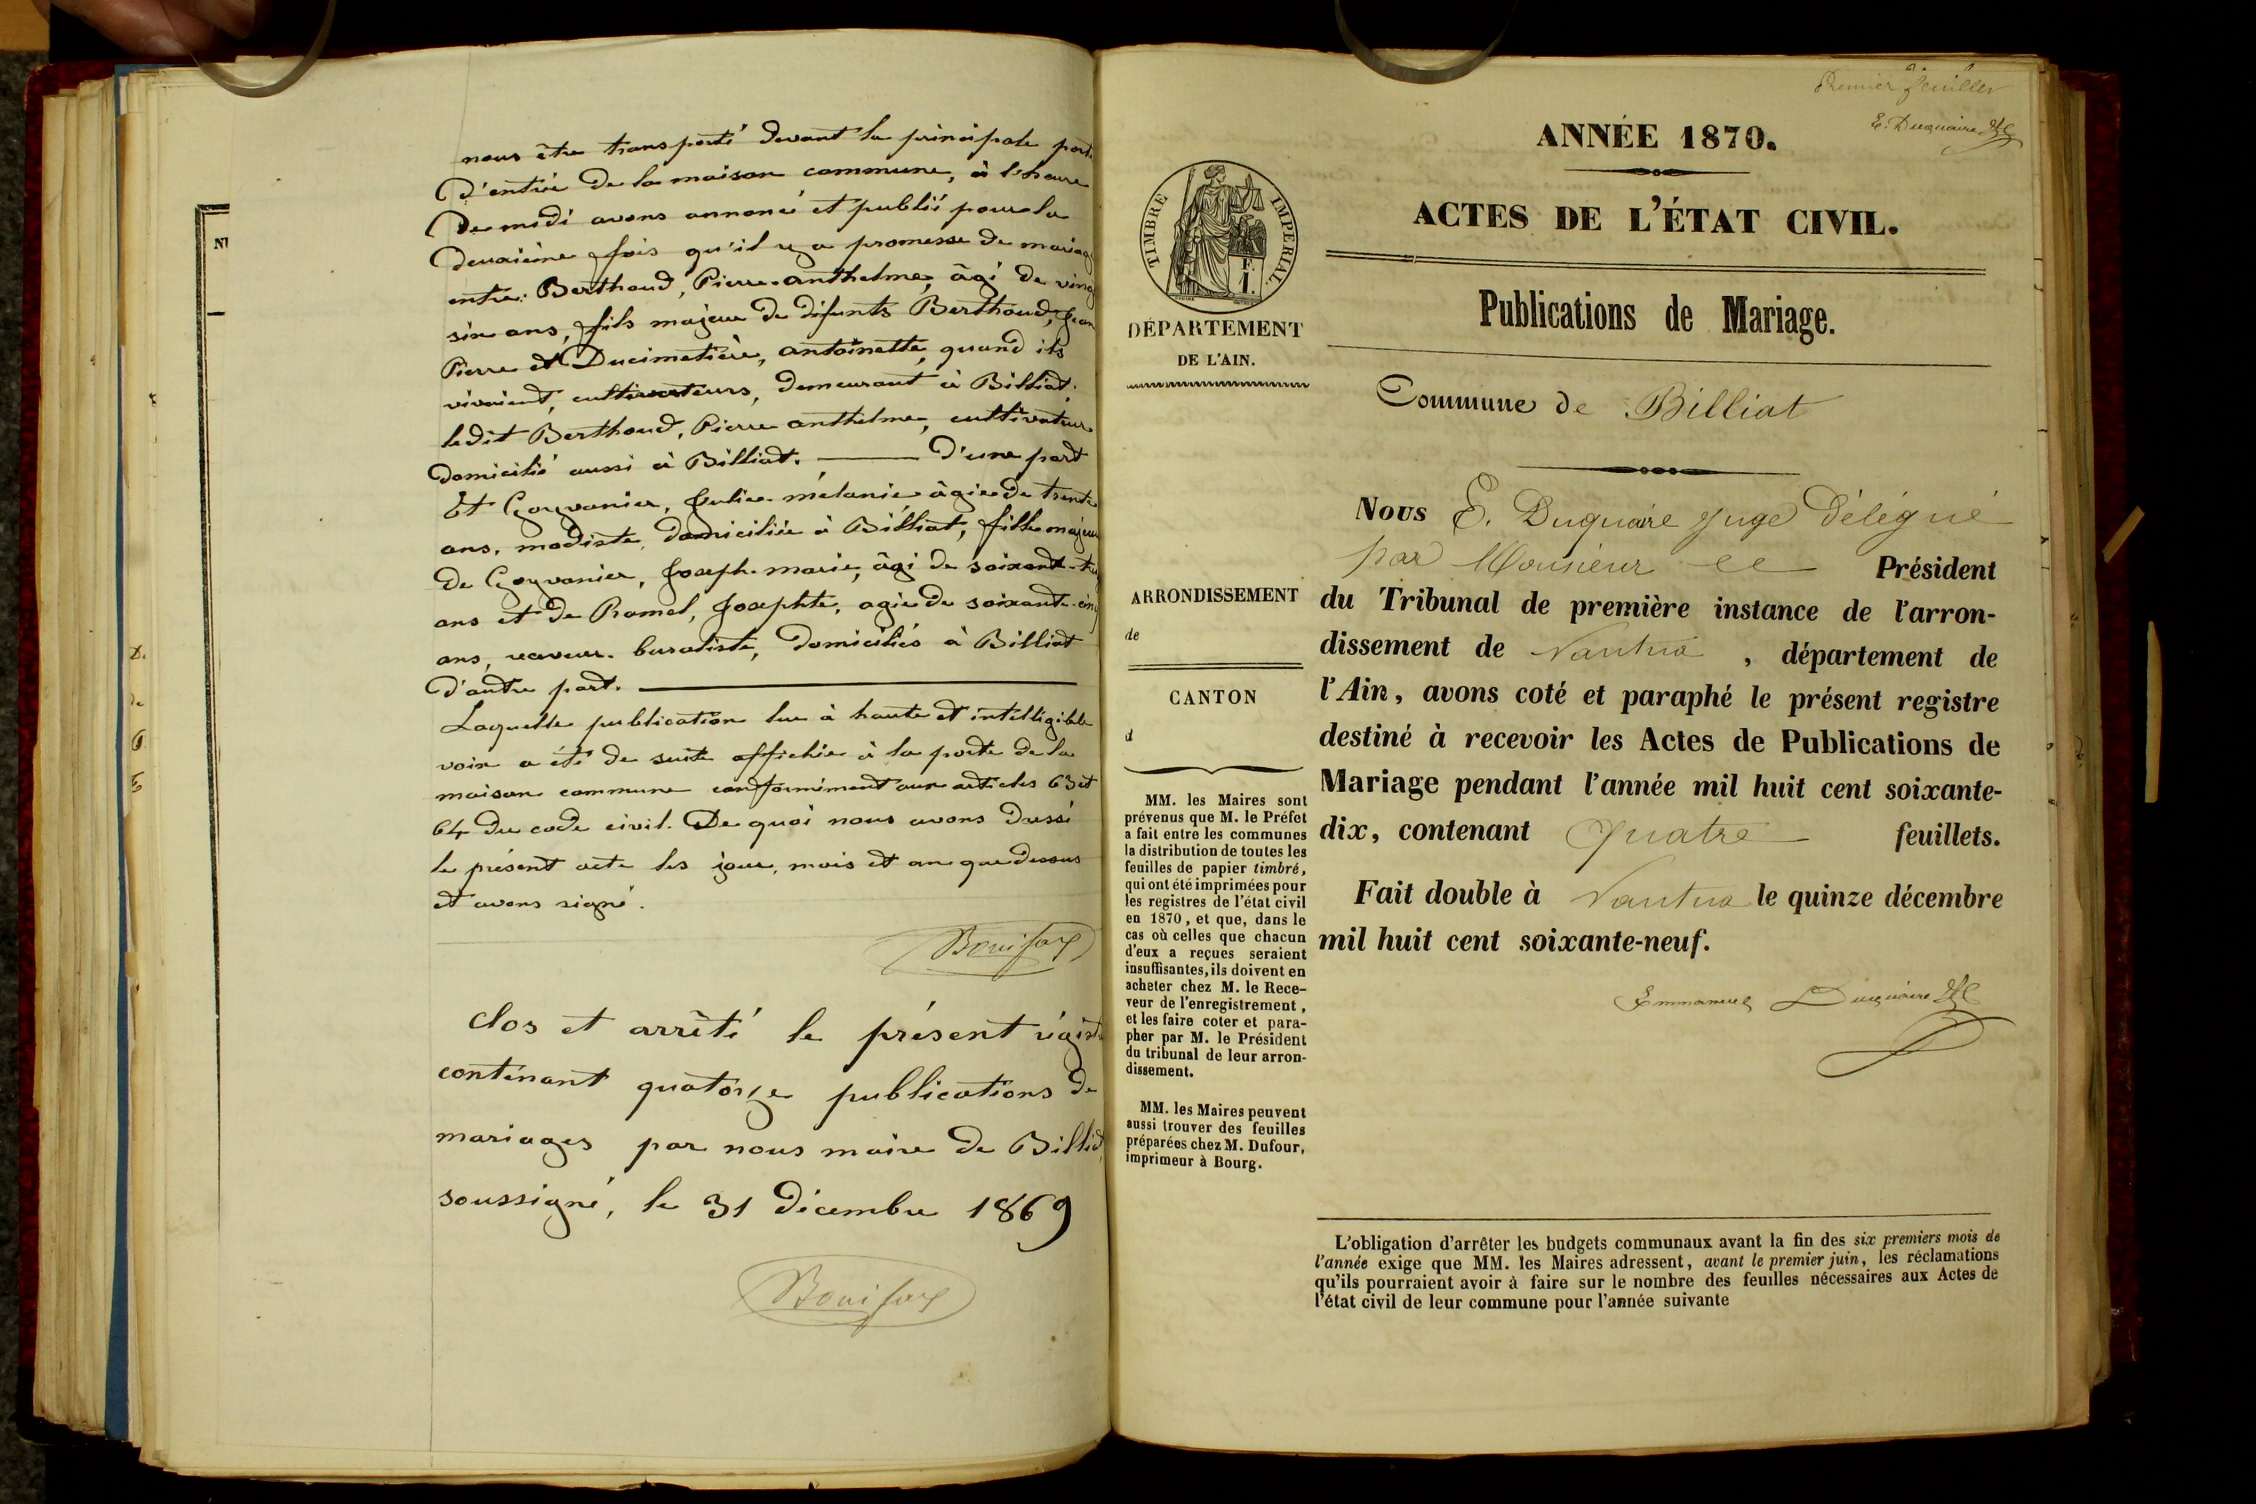 nous être transporté devant la principale port
d'entrée de la maison commune, à l'heure
de midi avons annoncé et publié pour la
deuxième fois qu'il y a promesse de mariag
entre: Berthoud, Pierre-anthelme, âgé de ving
six ans, fils majeur de défunts Berthoud, Jean
Pierre et Ducimetière, antoinette, quand ils
vivaient, cultivateurs, demeurant à Billiat,
ledit Berthoud, Pierre anthelme, cultivateur
domicilié aussi à Billiat. — d'une part
Et Goyvanier, Julie-mélanie âgée de trente
ans, modiste, domiciliée à Billiat, fille majeur
de Goyvanier, Joseph-marie, âgé de soixante-
ans et de Ramel, Josephte, agée de soixante-cinq
ans, receveur-buraliste, domiciliés à Billiat
d'autre part. —
Laquelle publication lue à haute et intelligible
voix a été de suite affichée à la porte de la
maison commune conformément aux articles 63 et
64 du code civil. De quoi nous avons dressé
le présent acte les jour, mois et an que dessus
et avons signé.
Bonifax
clos et arrêté le présent régist
contenant quatorze publications de
mariages par nous maire de Billiat
soussigné, le 31 décembre 1869
Bonifax
Premier feuillet
E. Duquaire
ANNÉE 1870.
ACTES DE L'ÉTAT CIVIL.
TIMBRE IMPERIAL.
DÉPARTEMENT
DE L'AIN.
Publications de Mariage.
Commune de Billiat
Nous E. Duquaire Juge délégué
par Monsieur le Président
ARRONDISSEMENT
de
du Tribunal de première instance de l'arron-
dissement de Nantua , département de
CANTON
d
l'Ain, avons coté et paraphé le présent registre
destiné à recevoir les Actes de Publications de
Mariage pendant l'année mil huit cent soixante-
dix, contenant quatre feuillets.
Fait double à Nantua le quinze décembre
mil huit cent soixante-neuf.
Emmanuel Duquaire
MM. les Maires sont
prévenus que M. le Préfet
a fait entre les communes
la distribution de toutes les
feuilles de papier timbré,
qui ont été imprimées pour
les registres de l'état civil
en 1870, et que, dans le
cas où celles que chacun
d'eux a reçues seraient
insuffisantes, ils doivent en
acheter chez M. le Rece-
veur de l'enregistrement,
et les faire coter et para-
pher par M. le Président
du tribunal de leur arron-
dissement.
MM. les Maires peuvent
aussi trouver des feuilles
préparées chez M. Dufour,
imprimeur à Bourg.
L'obligation d'arrêter les budgets communaux avant la fin des six premiers mois de
l'année exige que MM. les Maires adressent, avant le premier juin, les réclamations
qu'ils pourraient avoir à faire sur le nombre des feuilles nécessaires aux Actes de
l'état civil de leur commune pour l'année suivante